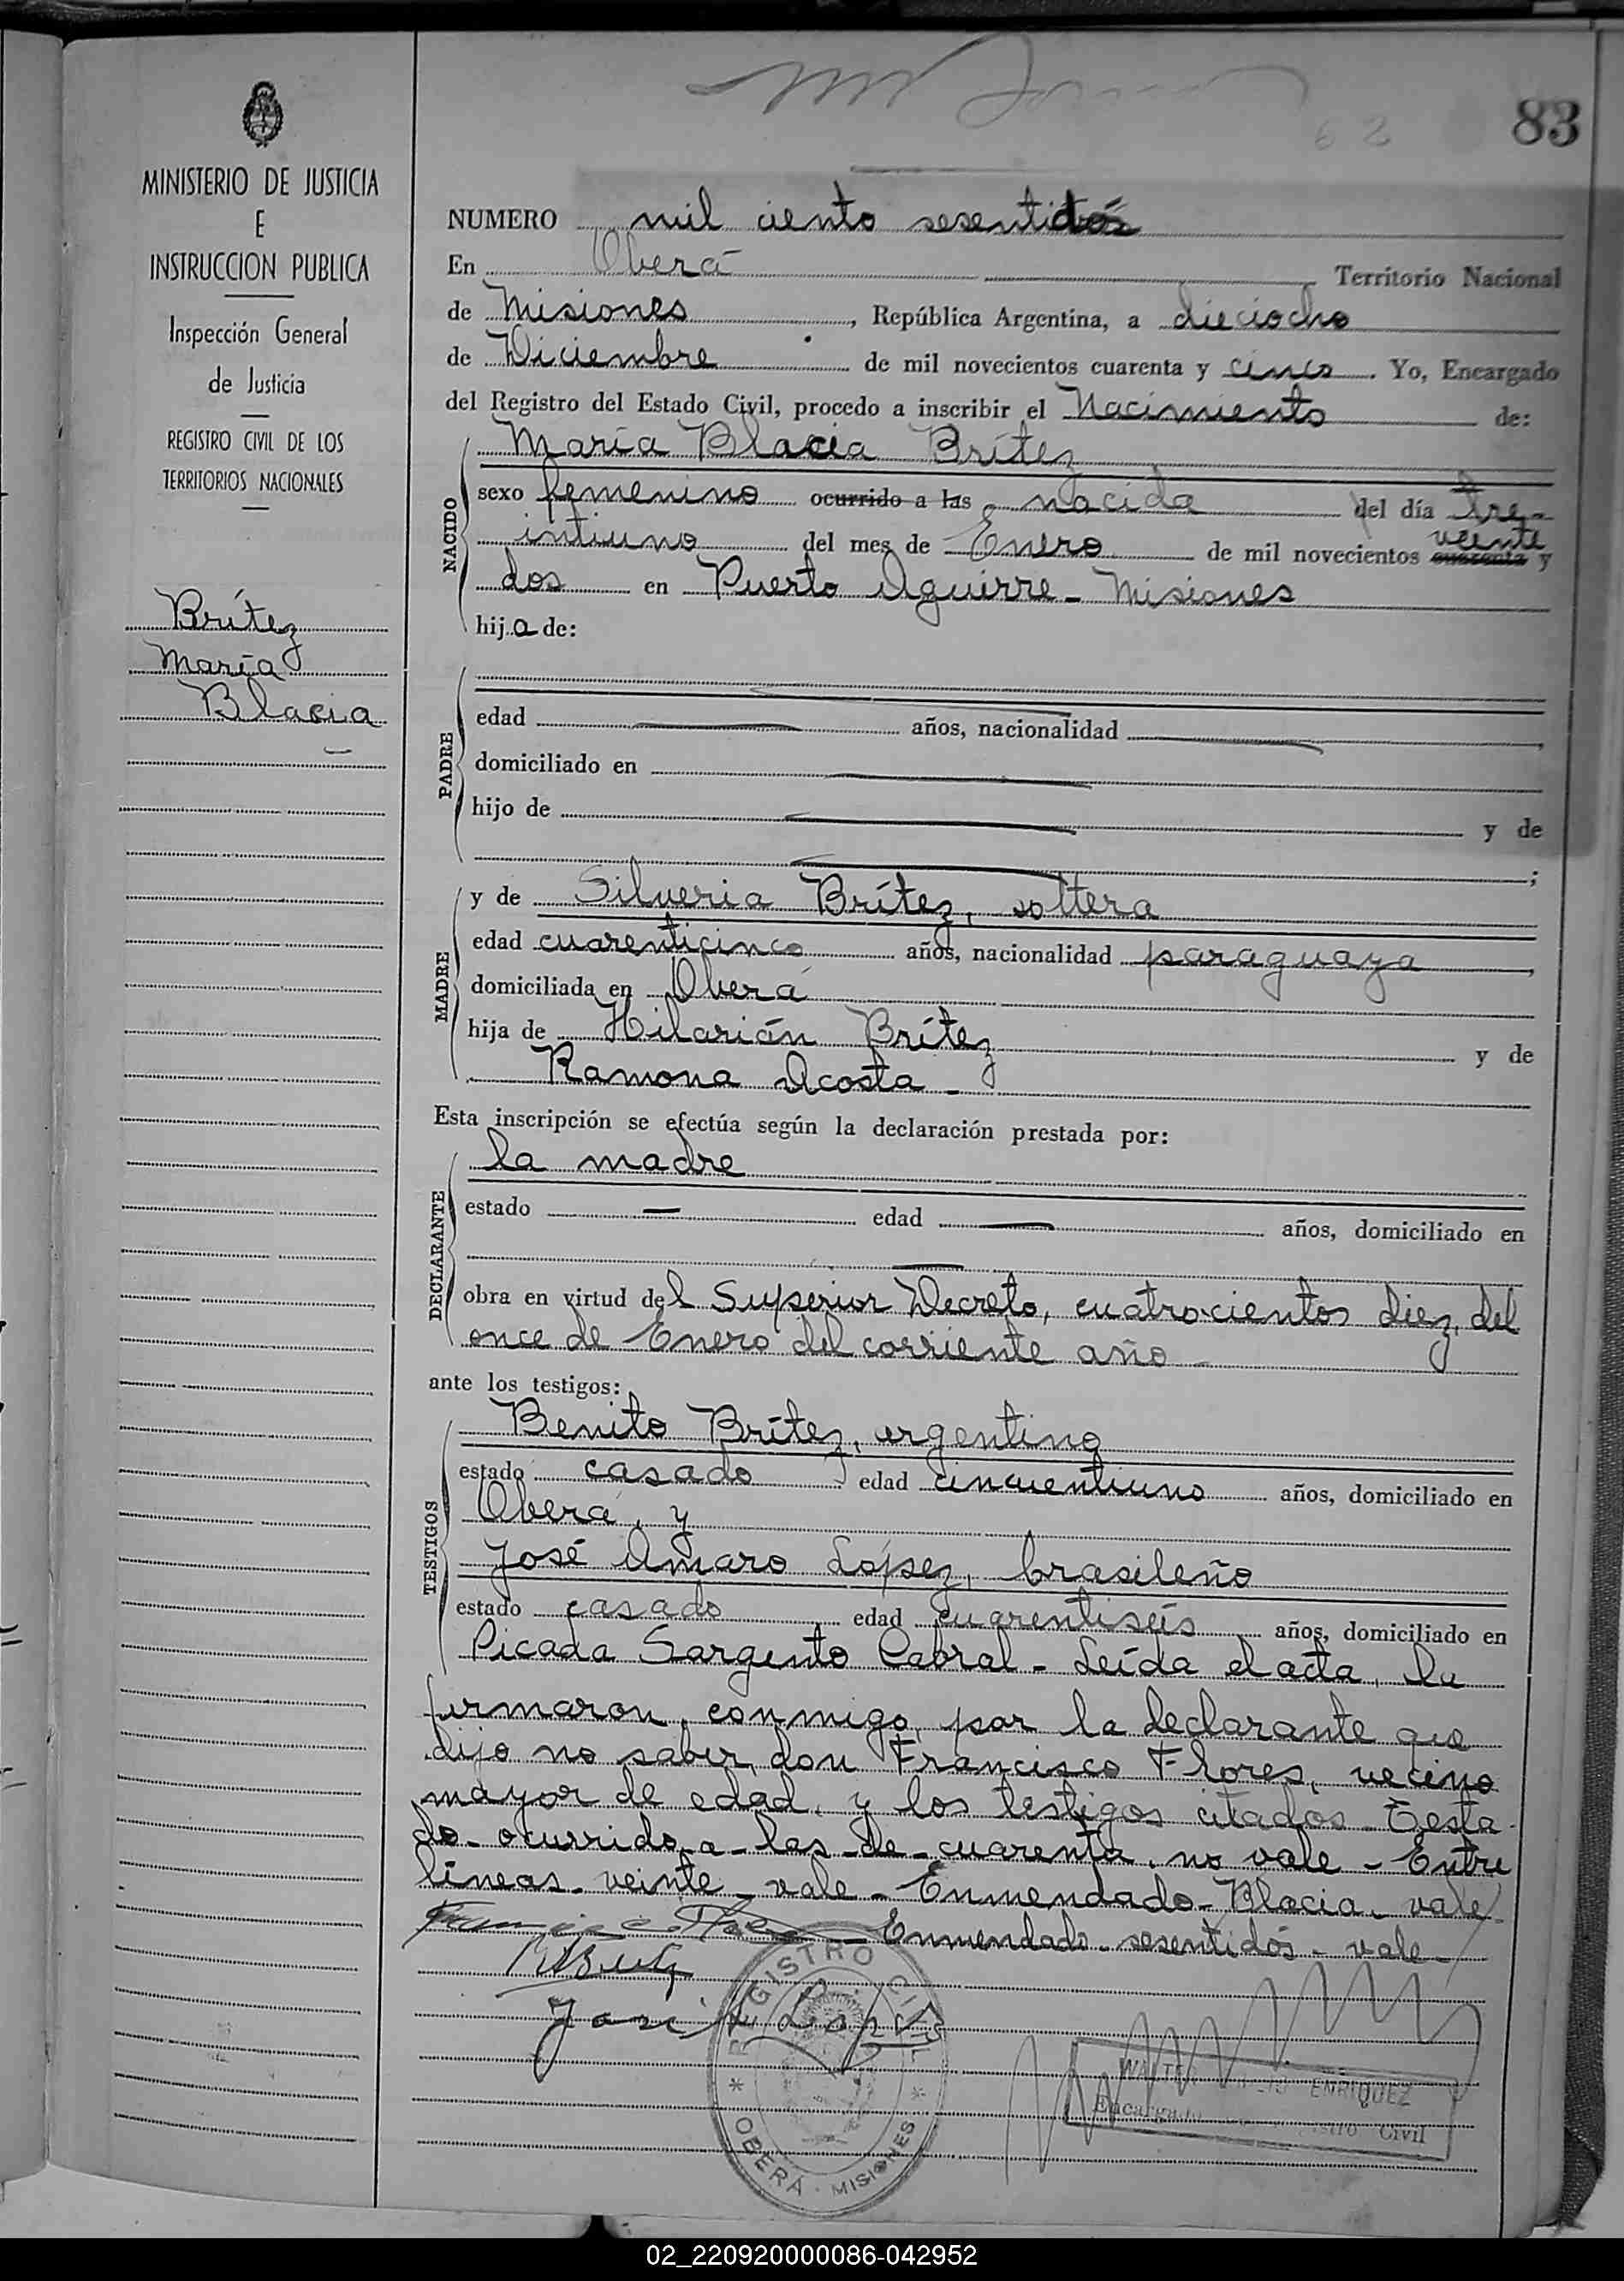 83
MINISTERIO DE JUSTICIA
E
INSTRUCCION PUBLICA
Inspección General
de Justicia
REGISTRO CIVIL DE LOS
TERRITORIOS NACIONALES
Brítez
María
Blacia
NUMERO mil ciento sesentidós
En Oberá Territorio Nacional
de Misiones, República Argentina, a dieciocho
de Diciembre de mil novecientos cuarenta y cinco. Yo, Encargado
del Registro del Estado Civil, procedo a inscribir el Nacimiento de:
NACIDO
María Blacia Brítez
sexo femenino ocurrido a las nacida del día tre-
intiuno del mes de Enero de mil novecientos cuarenta veinte y
dos en Puerto Aguirre - Misiones
hija de:
PADRE
edad años, nacionalidad
domiciliado en
hijo de y de
;
MADRE
y de Silveria Brítez, soltera
edad cuarenticinco años, nacionalidad paraguaya,
domiciliada en Oberá
hija de Hilarián Brítez y de
Ramona Acosta -
Esta inscripción se efectúa según la declaración prestada por:
DECLARANTE
la madre
estado — edad — años, domiciliado en
—
obra en virtud del Superior Decreto, cuatrocientos diez, del
once de Enero del corriente año -
ante los testigos:
TESTIGOS
Benito Brítez, argentino
estado casado edad cincuentiuno años, domiciliado en
Oberá, y
José Amaro López, brasileño
estado casado edad cuarentiséis años, domiciliado en
Picada Sargento Cabral - Leída el acta, la
firmaron, conmigo, por la declarante que
dijo no saber, don Francisco Flores, vecino
mayor de edad, y los testigos citados - Testa-
do - ocurrido - a - las - de - cuarenta, no vale - Entre
líneas - veinte - vale - Enmendado - Blacia - vale
Enmendado - sesentidós - vale -
REGISTRO CIVIL
OBERÁ - MISIONES
ENRIQUEZ
Encargado Registro Civil
02_220920000086-042952